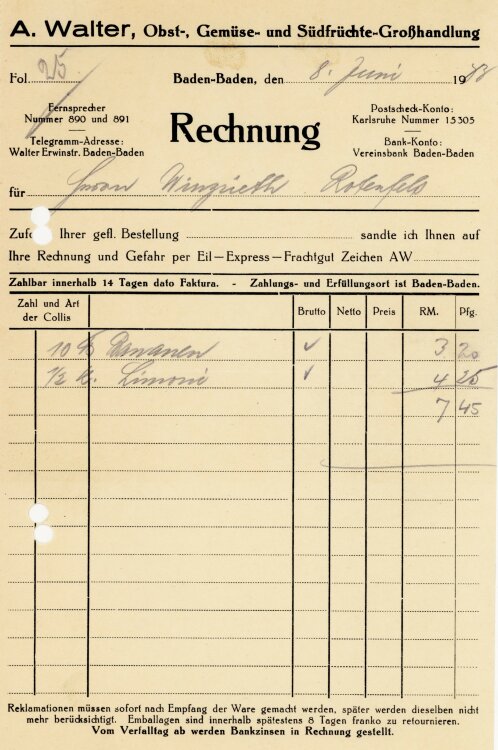 A. Walter, Obst-, Gemüse- und Südfrüchte-Großhandlung
Fol. 25 Baden-Baden, den 8. Juni 1938
Fernsprecher
Nummer 890 und 891
Telegramm-Adresse:
Walter Erwinstr. Baden-Baden
Rechnung
Postscheck-Konto:
Karlsruhe Nummer 15305
Bank-Konto:
Vereinsbank Baden-Baden
für Herrn Rotenfels
Zufo Ihrer gefl. Bestellung sandte ich Ihnen auf
Ihre Rechnung und Gefahr per Eil—Express—Frachtgut Zeichen AW
Zahlbar innerhalb 14 Tagen dato Faktura. - Zahlungs- und Erfüllungsort ist Baden-Baden.
Zahl und Art der Collis Brutto Netto Preis RM. Pfg.
10 ℔ Bananen ✓ 3 20
1/2 K. Limoni ✓ 4 25
7 45
Reklamationen müssen sofort nach Empfang der Ware gemacht werden, später werden dieselben nicht
mehr berücksichtigt. Emballagen sind innerhalb spätestens 8 Tagen franko zu retournieren.
Vom Verfalltag ab werden Bankzinsen in Rechnung gestellt.